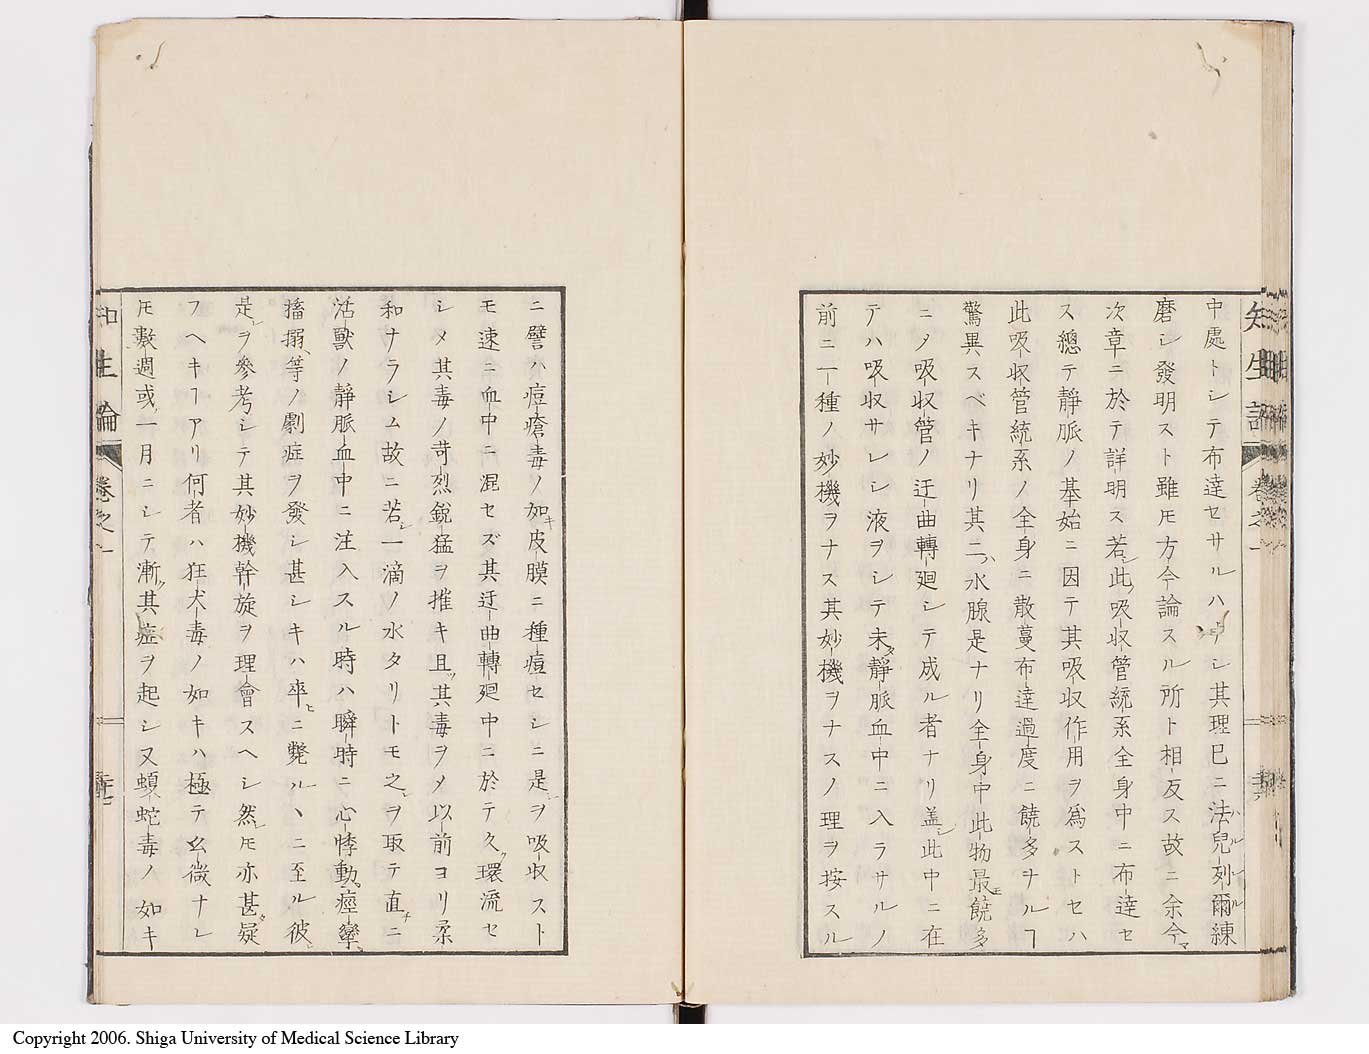 知生論 卷之一
中處トシテ布達セサルハナシ其理巳ニ法兒列爾練
磨シ發明スト雖モ方今論スル所ト相反ス故ニ余今
次章ニ於テ詳明ス若此吸収管統系全身中ニ布達セ
ス總テ靜脈ノ基始ニ因テ其吸収作用ヲ爲ストセハ
此吸収管統系ノ全身ニ散蔓布達過度ニ饒多ヲルヿ
驚異スベキナリ其二水腺是ナリ全身中此物最饒多
ニノ吸収管ノ迂曲轉廻シテ成ル者ナリ盖此中ニ在
テハ吸收サレシ液ヲシテ未靜脈血中ニ入ラサルノ
前ニ一種ノ妙機ヲナス其妙機ヲナスノ理ヲ按スル
ニ譬ハ痘瘡毒ノ如キ皮膜ニ種痘セシニ是ヲ吸收スト
モ速ニ血中ニ混セズ其迂曲轉廻中ニ於テ久ク環流セ
シメ其毒ノ苛烈銳猛ヲ摧キ且ツ其毒ヲメ以前ヨリ柔
和ナラシム故ニ若シ一滴ノ水タリトモ之ヲ取テ直チニ
活獸ノ靜脈血中ニ注入スル時ハ瞬時ニ心悸動痙攣
搐搦等ノ劇症ヲ發シ甚シキハ卒ニ斃ルヽニ至ル彼
是ヲ參考シテ其妙機幹旋ヲ理會スヘシ然レモ亦甚タ疑
フヘキヿアリ何者ハ狂犬毒ノ如キハ極テ幺微ナレ
モ數週或一月ニシテ漸其症ヲ起シ又蝮蛇毒ノ如キ
知生論 卷之一